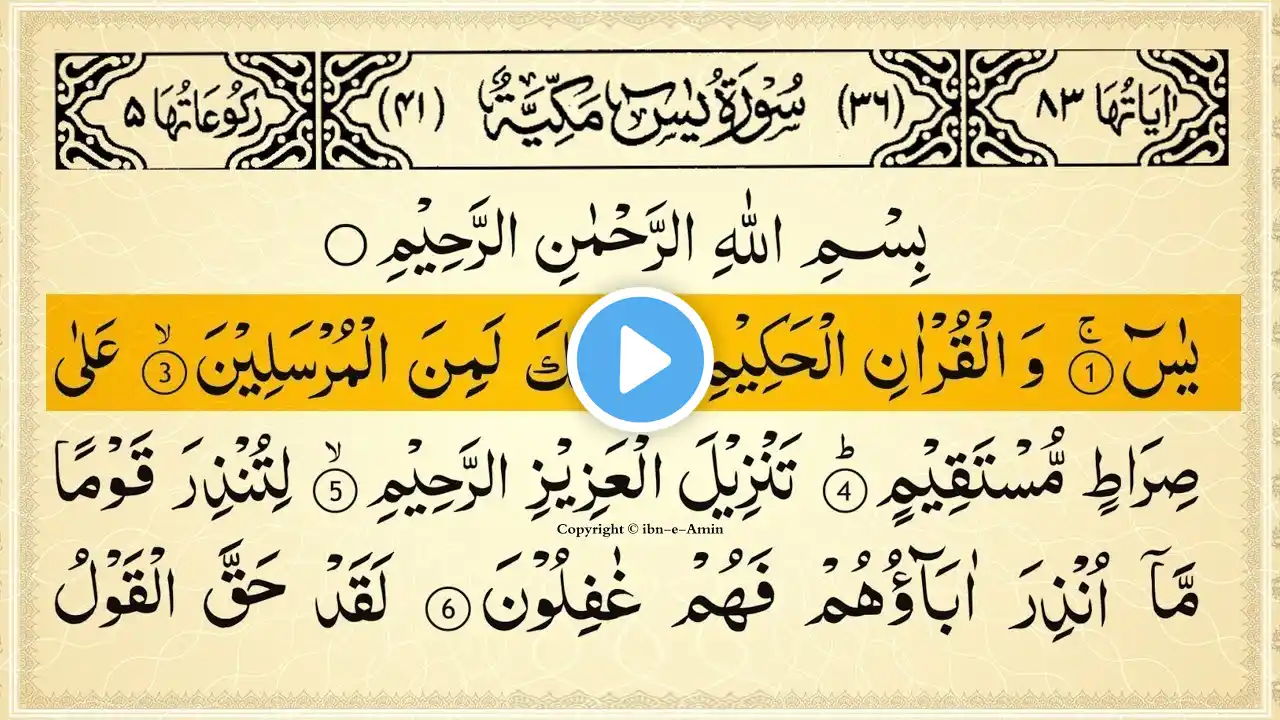 اٰيَاتُهَا ٨٣ (٣٦) سُوْرَةُ يٰسٓ مَكِّيَّةٌ (٤١) رَكُوْعَاتُهَا ٥
بِسْمِ اللّٰهِ الرَّحْمٰنِ الرَّحِيْمِ ○
يٰسٓ ۚ ① وَ الْقُرْاٰنِ الْحَكِيْمِ لَمِنَ الْمُرْسَلِيْنَ ۙ ③ عَلٰى
صِرَاطٍ مُّسْتَقِيْمٍ ؕ ④ تَنْزِيْلَ الْعَزِيْزِ الرَّحِيْمِ ۙ ⑤ لِتُنْذِرَ قَوْمًا
Copyright © ibn-e-Amin
مَّاۤ اُنْذِرَ اٰبَآؤُهُمْ فَهُمْ غٰفِلُوْنَ ⑥ لَقَدْ حَقَّ الْقَوْلُ